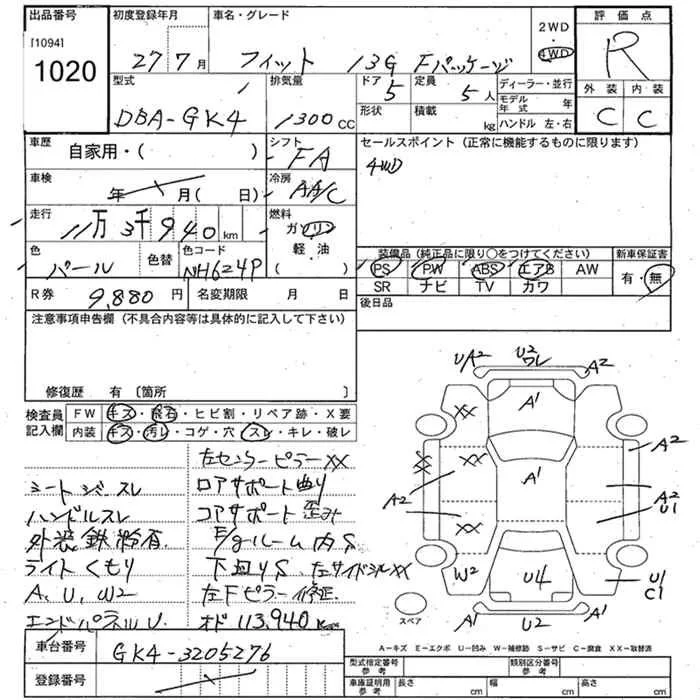 出品番号
[1094]
1020
初度登録年月
27 7 月
車名・グレード
フィット 13G Fパッケージ
2WD
・
4WD
評価点
R
外装 内装
C C
型式
DBA-GK4
排気量
1300 cc
ドア 5
形状
定員 5 人
積載 kg
ディーラー・並行
モデル年式 年
ハンドル 左・右
車歴
自家用・( )
シフト
FA
セールスポイント(正常に機能するものに限ります)
4WD
車検
年 月( 日)
冷房
AA/C
走行
11万 3千 940 km
燃料
ガソリン
軽油
( )
色
パール
色替
色コード
NH624P
装備品(純正品に限り○をつけてください)
新車保証書
PS PW ABS エアB AW
有・無
SR ナビ TV カワ
R券 9,880 円 名変期限 月 日
後日品
注意事項申告欄(不具合内容等は具体的に記入して下さい)
修復歴 有〔箇所 〕
検査員記入欄
FW キズ・飛石・ヒビ割・リペア跡・X要
内装 キズ・汚レ・コゲ・穴・スレ・キレ・破レ
左センターピラーXX
シートシミスレ ロアサポート曲り
ハンドルスレ コアサポート歪み
外装鉄粉有 E/gルーム内S
ライトくもり 下回りS 左サイドシルXX
A、U、W2 左Fピラー修正
エンドパネルU オド 113,940 km
車台番号 GK4-3205276
登録番号
U/A2 U2 ワレ A2
XX A1
XX XX A1 A2
A2 A2 U1
XX
W2 U4 U1 C1
スペア
A1 U2 A1
A-キズ E-エクボ U-凹み W-補修跡 S-サビ C-腐食 XX-取替済
型式指定番号 参考
類別区分番号 参考
車庫証明用 参考
長さ cm 幅 cm 高さ cm